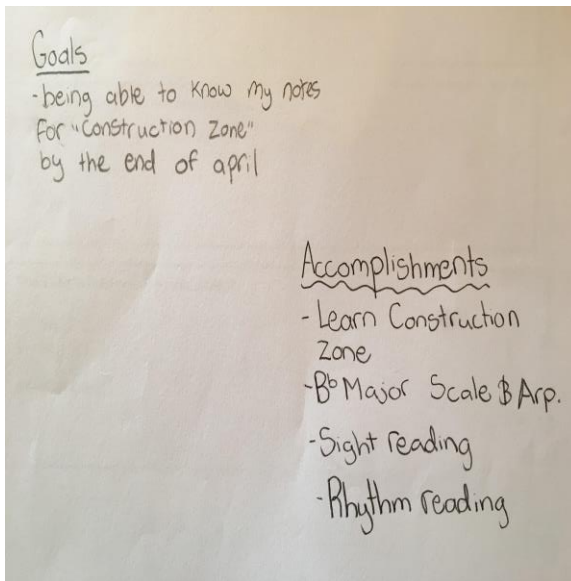 Goals
-being able to know my notes
for "Construction Zone"
by the end of april
Accomplishments
- Learn Construction
Zone
-B♭ Major Scale & Arp.
-Sight reading
-Rhythm reading